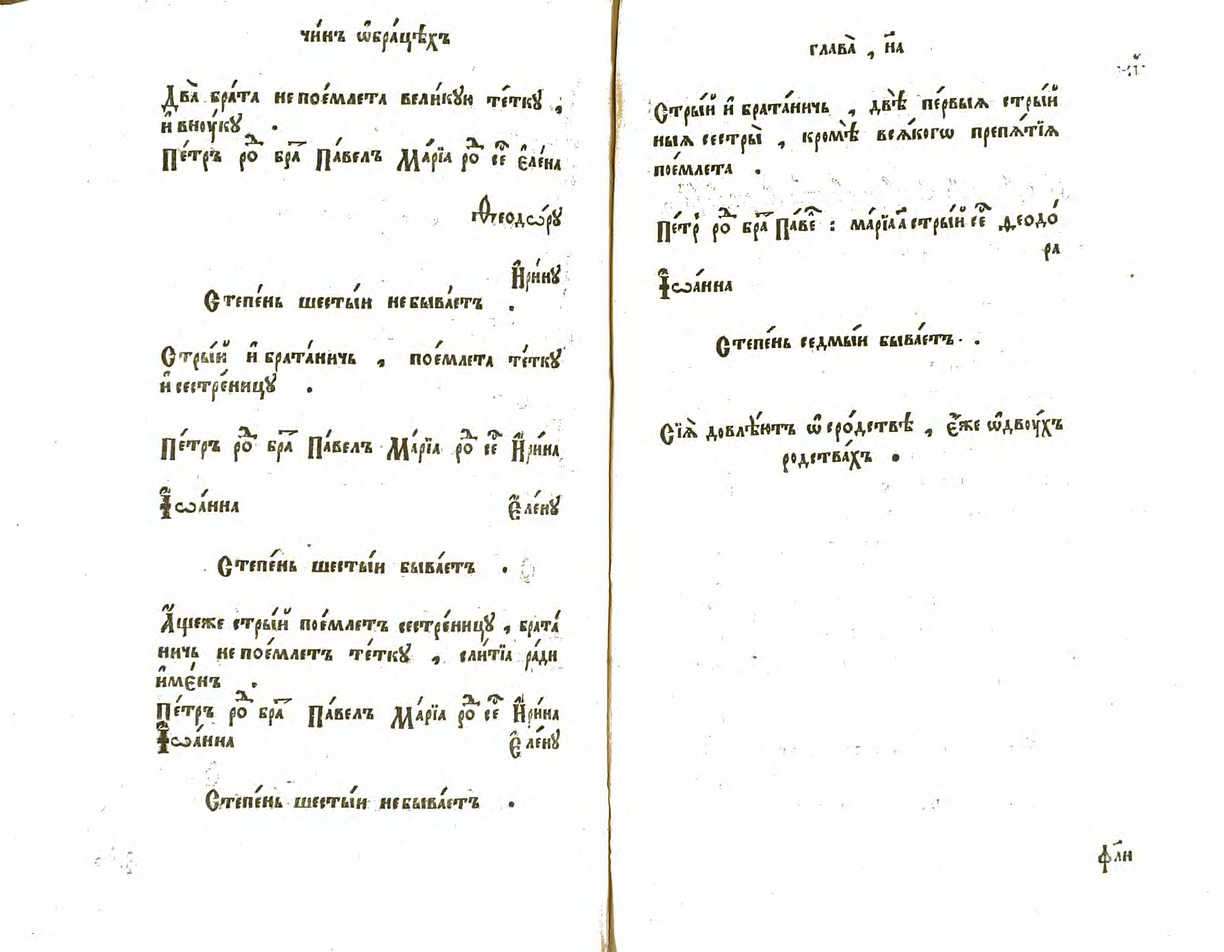 чи́нъ ѡ҆бра́цѣхъ
Два̀ бра́та не пое́млета вели́кую те́тку ,
и҆ вноу́ку .
Пе́тръ роⷣ бра̑ Па́велъ Ма́рїа роⷣ сеⷭ҇ є҆ле́на
Ѳеодѡ́ру
И҆ри́ну
Степе́нь шесты́и не быва́етъ .
Стры́й и҆ брата́ничь , пое́млета те́тку
и҆ сестре́ницу .
Пе́тръ роⷣ бра̑ Па́велъ Ма́рїа роⷣ сеⷭ҇ И҆ри́на
І҆ѡа́нна Є҆ле́ну
Степе́нь шесты́и быва́етъ .
А҆́щеже стры́й пое́млетъ сестре́ницу , брата́
ничь не пое́млетъ те́тку , сли́тїа ра́ди
и҆ме́нъ .
Пе́тръ роⷣ бра̑ Па́велъ Ма́рїа роⷣ сеⷭ҇ И҆ри́на
І҆ѡа́нна Є҆ле́ну
Степе́нь шесты́и не быва́етъ .
глава̀ , н҃а
Стры́й и҆ брата́ничь , двѣ̀ пе́рвыѧ стры́й
ныѧ сестры̀ , кромѣ̀ всѧ́когѡ препѧ́тїѧ
пое́млета .
Пе́тр роⷣ бра̑ Па́ве : ма́рїа а҃ стры́й сеⷭ҇ Ѳеодо́
ра
І҆ѡа́нна
Степе́нь седмы́и быва́етъ .
Сїѧ̀ довлѣ́ютъ ѡ҆ сро́дствѣ , є҆́же ѿ двоу́хъ
родства́хъ .
ф҃ли